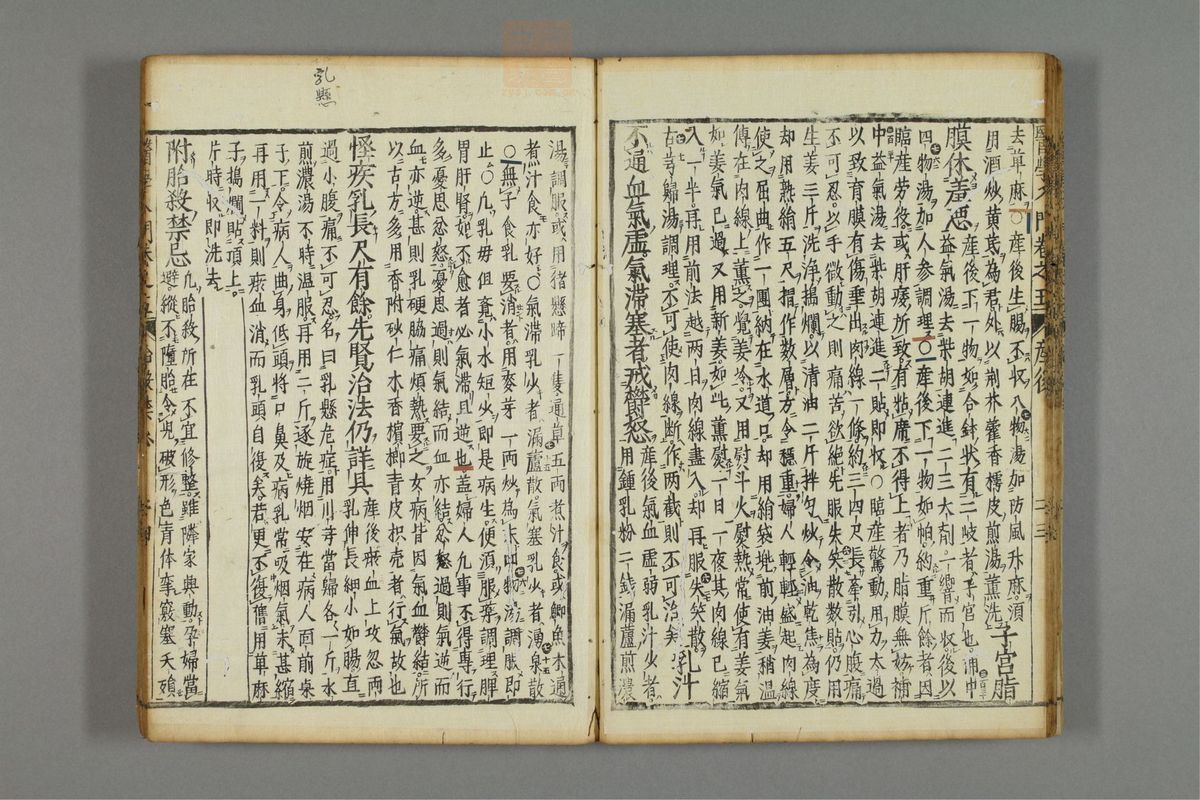 去草麻○産後生腸不収八物湯加防風升麻須
用酒炒黄茋為君外以荆芥藿香樗皮煎湯薫洗子宮脂
膜休產惡産後下一物如合鉢狀有二岐者子宮也補中
益氣湯去柴胡連進二三大剤一響而収後以
四物湯加人参調理○産後下一物如帕約重斤餘者因
臨産労役或肝痿所致有粘席不得上者乃脂膜無妨補
中益氣湯去柴胡連進二貼即収○臨産驚動用力太過
以致育膜有傷垂出肉線一條約三四尺長牽引心腹痛
不可忍以手微動之則痛苦欲絶先服失笑散数貼仍用
生姜三斤洗浄搗爛以清油二斤拌匀炒令油乾焦為度
却用熟絹五尺摺作数層方令穏重婦人輕輕盛起肉線
使之屈曲作一團納在水道口却用絹袋兠前油姜稍温
傅在肉線上薫之覺姜冷又用熨斗火熨熱常使有姜氣
如姜氣已過又用新姜如此薫熨一日一夜其肉線已縮
入一半再用前法越両日肉線盡入却再服失笑散
古芎歸湯調理不可使肉線断作两截則不可治矣乳汁
不通血氣虚氣滞塞者戒欝怒産後氣血虚弱乳汁少者
用鍾乳粉二錢漏蘆煎濃
湯調服或用猪懸蹄一隻通草五両煮汁食或鯽魚木通
煮汁食亦好○氣滞乳少者漏蘆散氣塞乳少者湧泉散
○無子食乳要消者用麥芽一両炒為末四物湯調服即
止○凡乳母但覚小水短少即是病生便須服藥調理脾
胃肝腎如不愈者必氣滞且逆也蓋婦人凡事不得專行
多憂思忿怒憂思過則氣結而血亦結忿怒過則氣逆而
血亦逆甚則乳硬脇痛煩熱要之女病皆因氣血欝結所
以古方多用香附砂仁木香檳榔青皮枳壳者行氣故也
怪疾乳長尺有餘先賢治法仍詳具産後瘀血上攻忽両
乳伸長細小如腸直
過小腹痛不可忍名曰乳懸危症用川芎當歸各一斤水
煎濃湯不時温服再用二斤逐旋燒烟安在病人面前桌
子下令病人曲身低頭將口鼻及病乳常吸烟氣未甚縮
再用一料則瘀血消而乳頭自復矣若更不復舊用萆麻
子搗爛貼頂上
片時収即洗去
附胎殺禁忌凡胎殺所在不宜修整雖隣家興動孕婦當
避縱不墮胎令児破形色青体攣竅塞夭殞
乳懸